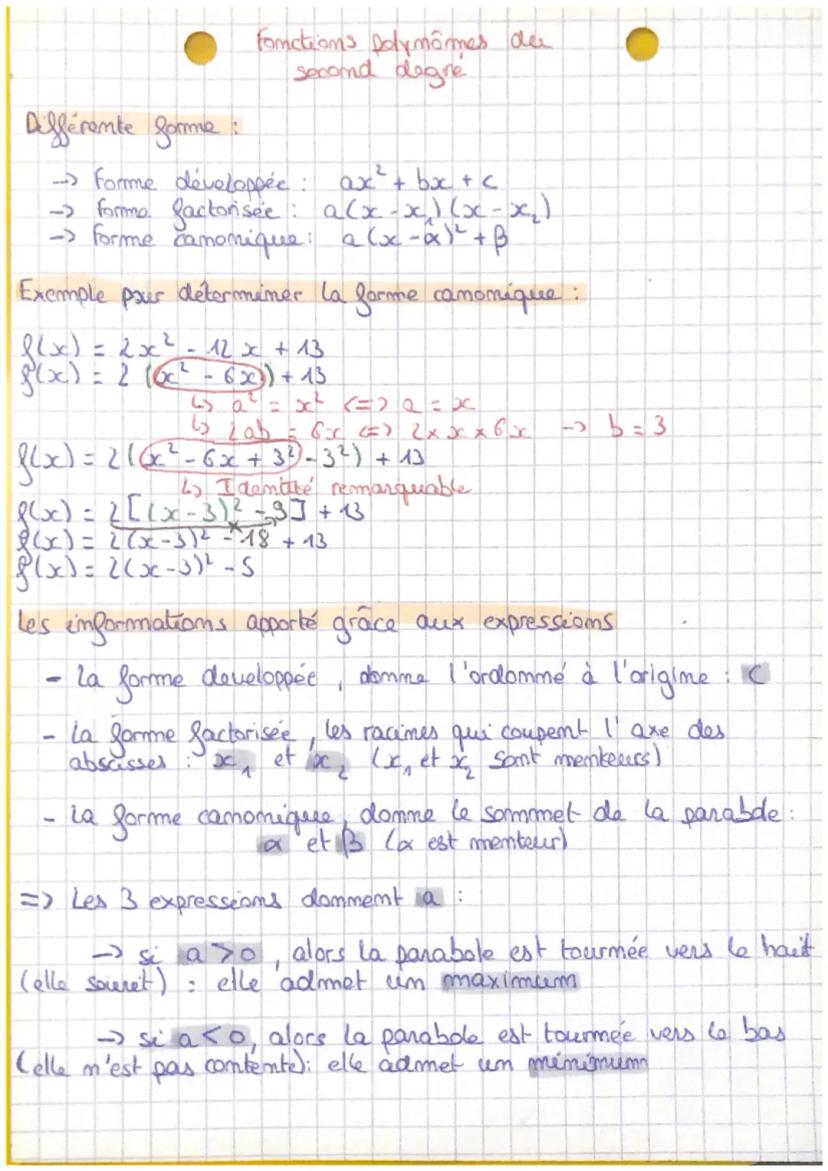 Fonctions polynômes du
second degré
Différente forme :
→ forme développée : ax² + bx + c
→ forme factorisée : a(x - x₁)(x - x₂)
→ forme canonique : a(x - α)² + β
Exemple pour déterminer la forme canonique :
f(x) = 2x² - 12x + 13
f(x) = 2(x² - 6x) + 13
↳ a² = x² <=> a = x
↳ 2ab = 6x <=> 2 × x × 6x → b = 3
f(x) = 2(x² - 6x + 3² - 3²) + 13
↳ Identité remarquable
f(x) = 2[(x-3)² - 9] + 13
f(x) = 2(x-3)² - 18 + 13
f(x) = 2(x-3)² - 5
Les informations apporté grâce aux expressions
- La forme developpée, donne l'ordonné à l'origine : C
- La forme factorisée, les racines qui coupent l'axe des
abscisses : x₁ et x₂ (x₁ et x₂ sont menteurs)
- La forme canonique, donne le sommet de la parabole :
α et β (α est menteur)
=> Les 3 expressions donnent a :
→ si a > 0, alors la parabole est tournée vers le haut
(elle sourit) : elle admet un maximum
→ si a < 0, alors la parabole est tournée vers le bas
(elle n'est pas contente) : elle admet un minimum